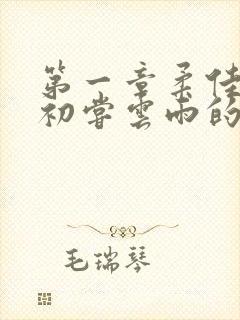 第一章柔佳
初尝雲雨的
毛瑞琴